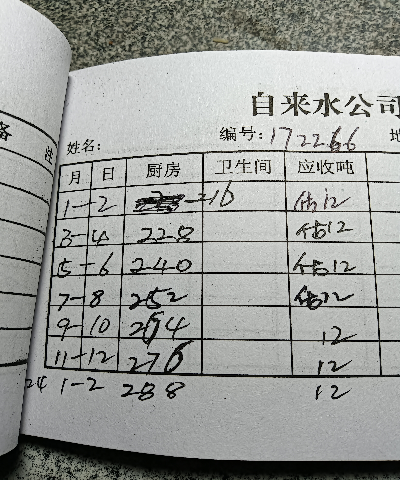 备 注
自来水公司
姓名： 编号：172266 地
月 日 厨房 卫生间 应收吨
1-2 216 估12
3-4 228 估12
5-6 240 估12
7-8 252 估12
9-10 264 12
11-12 276 12
24 1-2 288 12